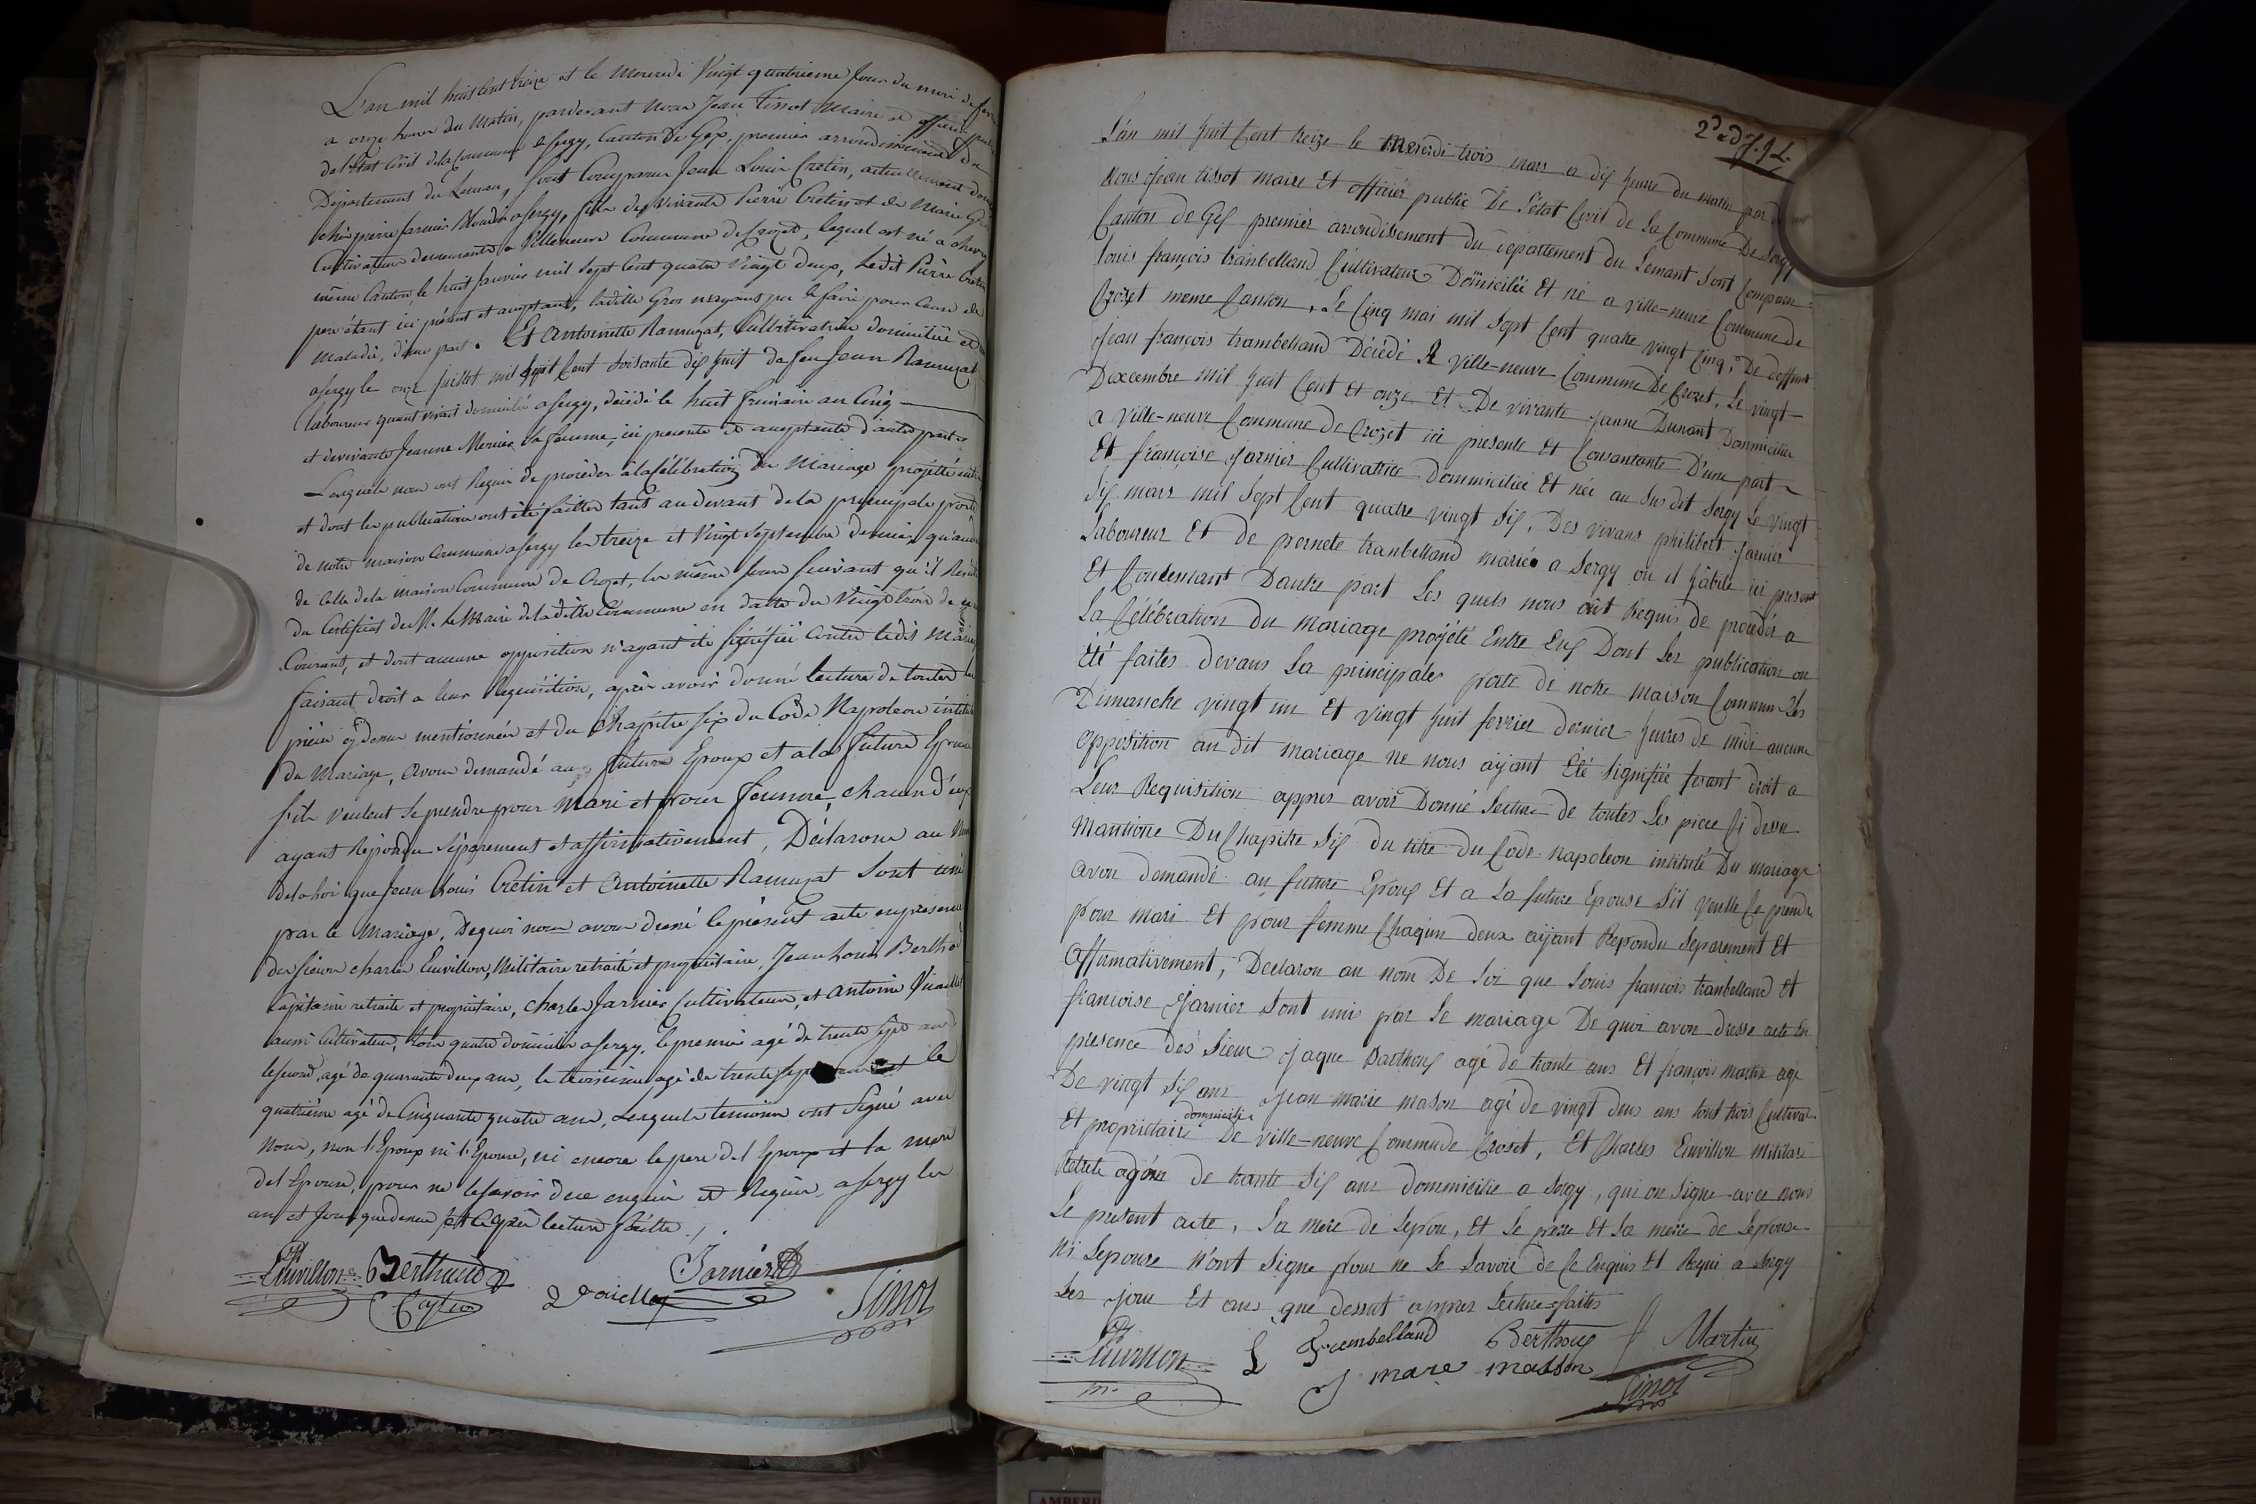 L'an mil huit Cent treize et le Mercredi Vingt quatrieme Jour du mois de
a onze heures du Matin, pardevant nous Jean Tissot Maire et officier
de l'Etat Civil de la Commune de Sergy, Canton de Gex, premier arrondissement du
Departement du Leman, sont Comparu Jean Louis Cretin, actuellement
chés pierre Jarnier a Sergy, fils des vivants Pierre Cretin et de Marie
Cultivateurs demeurants a Villeneuve Commune de Crozet, lequel est né a
même Canton, le huit Janvier mil Sept Cent quatre Vingt deux, Ledit Pierre Cretin
pere étant ici présent et acceptant, ladite Gros n'ayant pu le faire pour Cause de
Maladie, d'une part. Et Antoinette Ramuzat, Cultivatrice domiciliée et
a Sergy le onze Juillet mil Sept Cent Soixante dix huit de feu Jean Ramuzat
laboureur quand vivait domicilié a Sergy, décédé le huit frimaire an Cinq
et de vivante Jeanne Mercier sa femme, ici presente et acceptante d'autre part
Lesquels nous ont Requis de proceder à la Célébration du Mariage projetté entre
et dont les publications ont été faittes tant au devant de la principale porte
de notre maison Commune a Sergy les treize et Vingt Septembre dernier, qu'au
de Celle de la maison Commune de Crozet, les même Jours suivant qu'il
du Certificat de M. le Maire de ladite Commune en datte du Vingt trois de
Courant, et dont aucune opposition n'ayant été signifiée Contre ledit
faisant droit a leur Requisition, après avoir donné lecture de toutes
pièces cy dessus mentionnées et du Chapitre six du Code Napoleon intitulé
du Mariage, avons demandé au future Epoux et a la future Epouse
s'ils veulent se prendre pour Mari et pour femme, chacun d'eux
ayant Répondu Séparement et affirmativement, Déclarons au Nom
de la Loi que Jean Louis Cretin et Antoinette Ramuzat Sont unis
par le Mariage, Dequoi nous avons dressé le présent acte en presence
des Sieurs charles Emvillon, Militaire retraité et propriétaire, Jean Louis Berthé
Capitaine retraité et propriétaire, Charles Jarnier Cultivateur, et Antoine
aussi Cultivateur, tous quatre domiciliés a Sergy, le premier agé de trente Sept ans
le second, agé de quarante deux ans, le troisième agé de trente sept et le
quatrième agé de Cinquante quatre ans, Lesquels temoins ont Signé avec
Nous, non l'Epoux ni l'Epouse, ni encore le pere de l'Epoux et la mere
de l'Epouse, pour ne le savoir de ce enquis et Requis, a Sergy les
an et Jour que dessus et après lecture faitte.
Emvillon Berthet Jarnier
Tissot
2d d 7. 9 L.
L'an mil huit Cent treize le Mercredi trois mars a dix heure du matin par
Nous Jean tissot maire Et officier public De l'état Civil de La Commune De Sergy
Canton de Gex premier arrondissement du departement du Lemant Sont Comparu
Louis françois tranbelland Cultivateur Domicilié Et né a ville-neuve Commune de
Crozet meme Canton, Le Cinq mai mil Sept Cent quatre vingt Cinq, De deffunt
Jean françois trambelland Décédé A ville-neuve Commune De Crozet, Le vingt
Dexcembre mil huit Cent Et onze Et De vivante Janne Dunant Dommiciliée
a ville-neuve Commune de Crozet ici presente Et Consantante D'une part
Et françoise Jarnier Cultivatrice Dommiciliée Et née au Sus dit Sergy Le vingt
Six mars mil Sept Cent quatre vingt Six, Des vivans philibert Jarnier
Laboureur Et de pernete tranbelland mariés a Sergy ou il habite ici present
Et Consentant Dautre part Les quels nous ont Requis de proceder a
La Célébration du mariage projété Entre Eux Dont Les publication on
Eté faites devans La principales porte de notre maison Commun Les
Dimanche vingt un Et vingt huit fevrier dernier heures de midi aucune
Opposition au dit mariage ne nous aÿant Eté Signifiée fesant droit a
Leur Requisition appres avoir Donné Lecture de toutes Les piece Ci dessu
Mantioné Du Chapitre Six du titre du Code Napoleon intitulé Du mariage
avon demandé au future Epoux Et a La future Epouse S'il veulle Se prendre
pour mari Et pour femme Chaqun deux aÿant Repondu Separement Et
Affirmativement, Declaron au nom De Loi que Louis françois tranbelland Et
françoise Jarnier Sont uni par Le mariage De quoi avon dresse acte En
presence des Sieur Jaque Barthoux agé de trante ans Et françois martin agé
De vingt Six ans Jean marie mason agé de vingt deux ans tout trois Cultivat
Et proprietaire domicilié De ville-neuve Commude Crozet, Et Charles Emvillon militaire
Retrete agé de trante Six ans dommicilie a Sergy, qui on Signe avec nous
Le present acte, La mere de Lepou, Et Le pere Et La mere de Lepouse
Ni Lepouse N'ont Signe pour ne Le Savoir de Ce Enquis Et Requi a Sergy
Les Jour Et ans que dessut appres Lecture faites
Emvillon L trambelland Berthoux f Martin
J marie masson Tissot